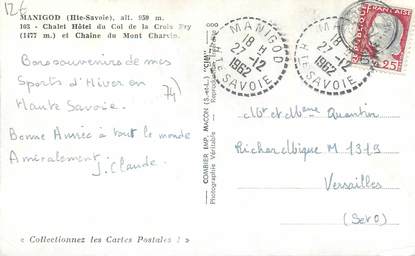 12€
MANIGOD (Hte-Savoie), alt. 950 m.
103 - Chalet Hôtel du Col de la Croix Fry
(1477 m.) et Chaîne du Mont Charvin.
Bons souvenirs de mes
Sports d'Hiver en
Haute Savoie.
74
Bonne Année à tout le monde
Amicalement
J. Claude.
« Collectionnez les Cartes Postales ! »
COMBIER IMP. MACON (S.-et-L.) "CIM"
Photographie Véritable Reproduction
MANIGOD
18 H
27-12
1962
HTE SAVOIE
MANIGOD
18 H
27-12
1962
HTE SAVOIE
0,25
Mr et Mme Quantin
Richer M 1319
Versailles
(S et O)